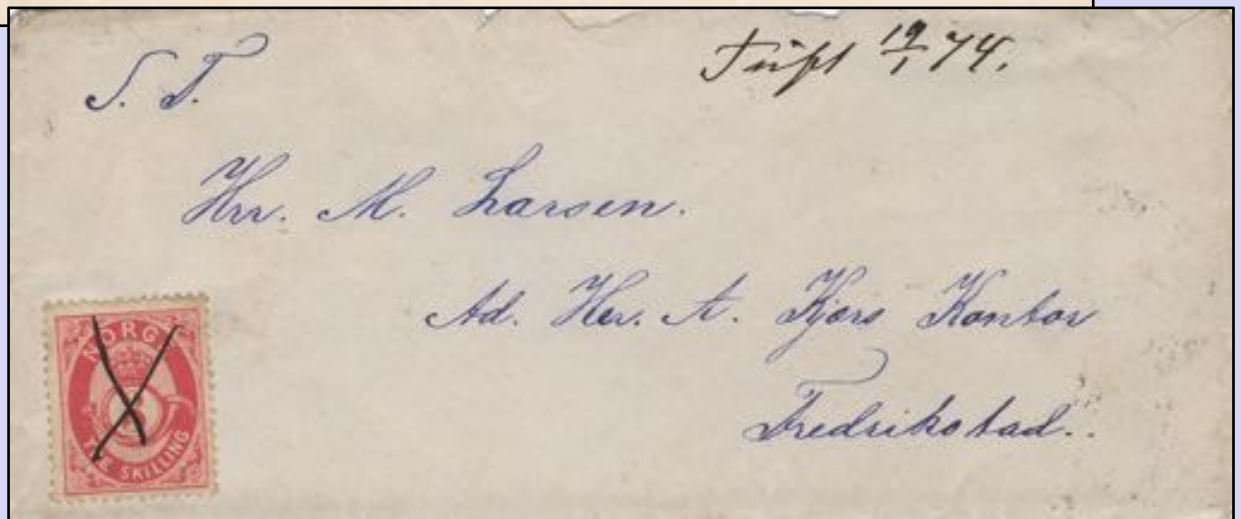 S. T.
Tüft 19/1 74.
Hrr. M. Larsen.
Ad. Hrr. A. Kjærs Kontor
Fredrikstad.
NORGE
3
TRE SKILLING